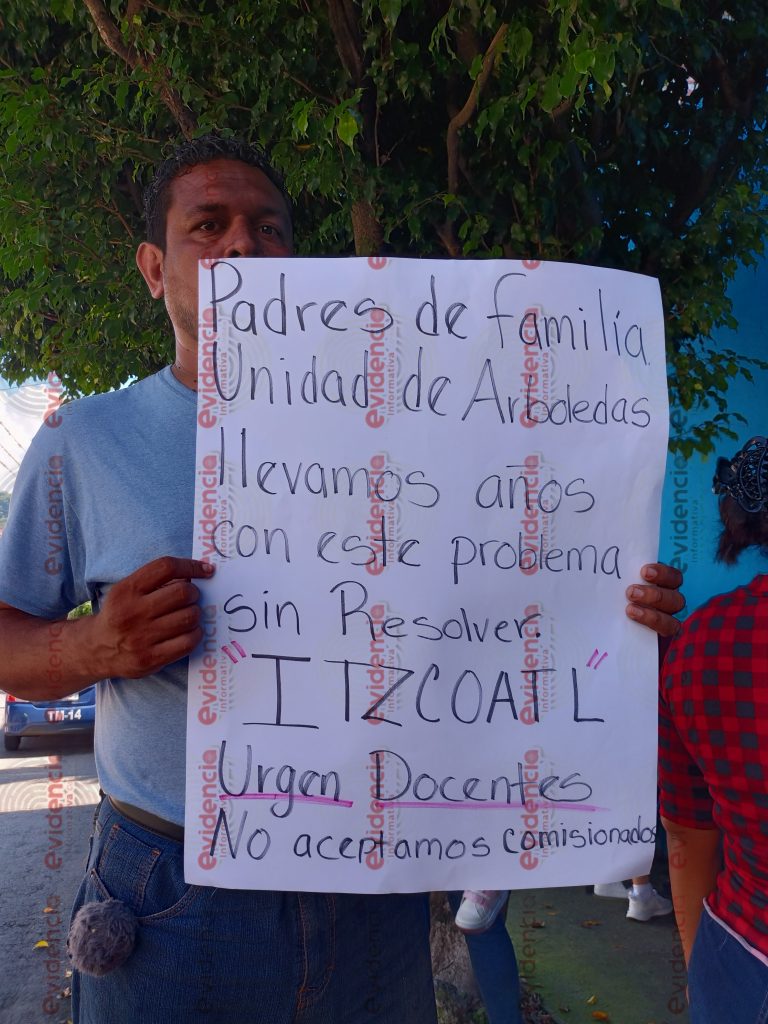 Padres de familia.
Unidad de Arboledas
llevamos años
con este problema
sin Resolver.
"ITZCOATL"
Urgen Docentes
No aceptamos comisionados
TM-14
evidencia
informativa